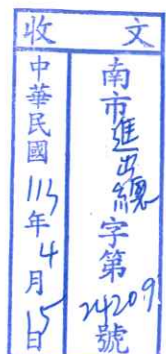 收文
南市進出總字第24209號
中華民國113年4月15日